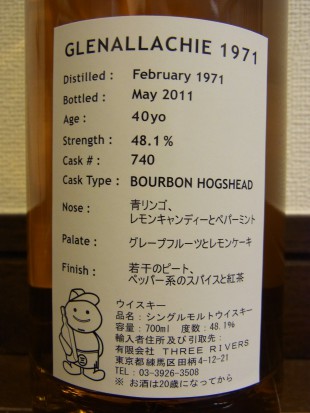 GLENALLACHIE 1971
Distilled : February 1971
Bottled : May 2011
Age : 40yo
Strength : 48.1%
Cask # : 740
Cask Type : BOURBON HOGSHEAD
Nose : 青リンゴ、
レモンキャンディーとペパーミント
Palate : グレープフルーツとレモンケーキ
Finish : 若干のピート、
ペッパー系のスパイスと紅茶
ウイスキー
品名：シングルモルトウイスキー
容量：700ml 度数：48.1%
輸入者住所及び引取先：
有限会社 THREE RIVERS
東京都練馬区田柄4-12-21
TEL：03-3926-3508
※ お酒は20歳になってから